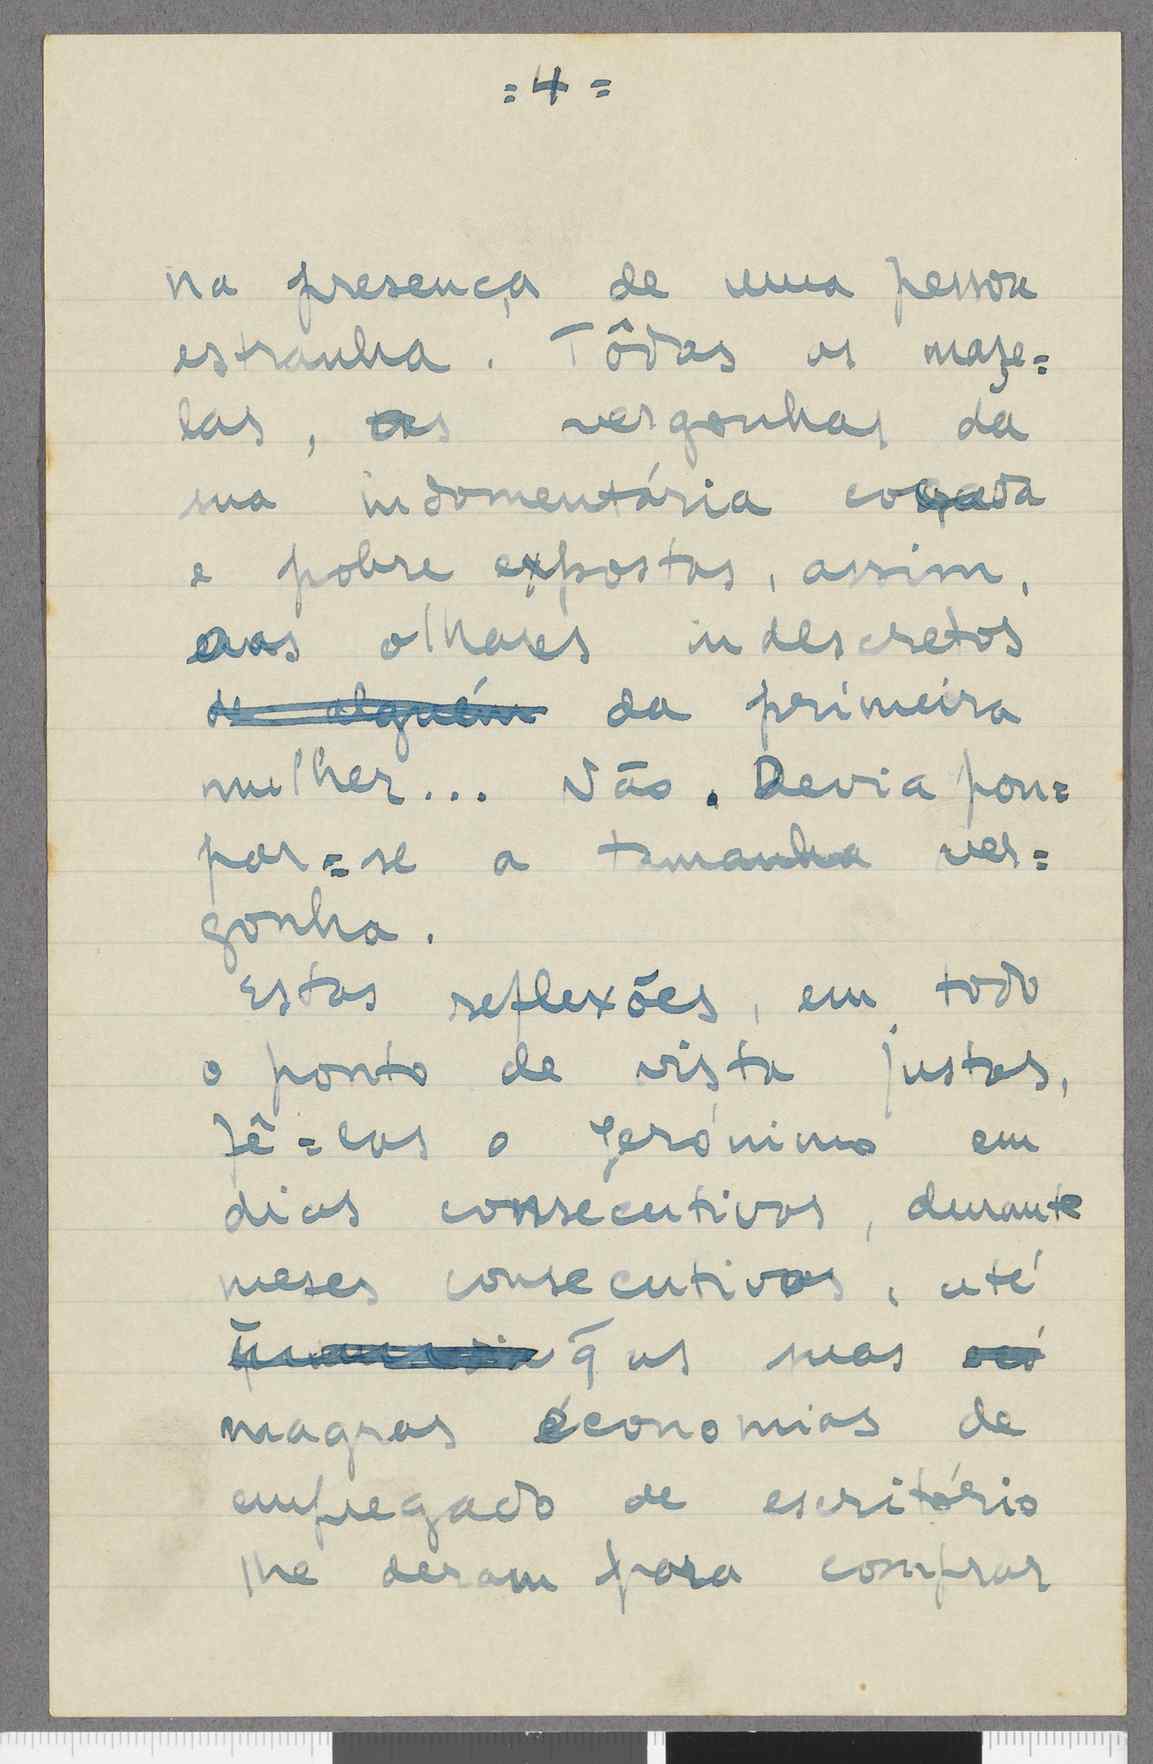 =4=
na presença de uma pessoa
estranha. Tôdas as maze=
las, as vergonhas da
sua indomentária coçada
e pobre expostas, assim,
aos olhares indescretos
de alguém da primeira
mulher... Não. Devia pou=
par=se a tamanha ver=
gonha.
Estas reflexões, em todo
o ponto de vista justas,
fê=las o Jerónimo em
dias consecutivos, durante
meses consecutivos, até
q̄ as suas
magras economias de
empregado de escritório
lhe deram para comprar